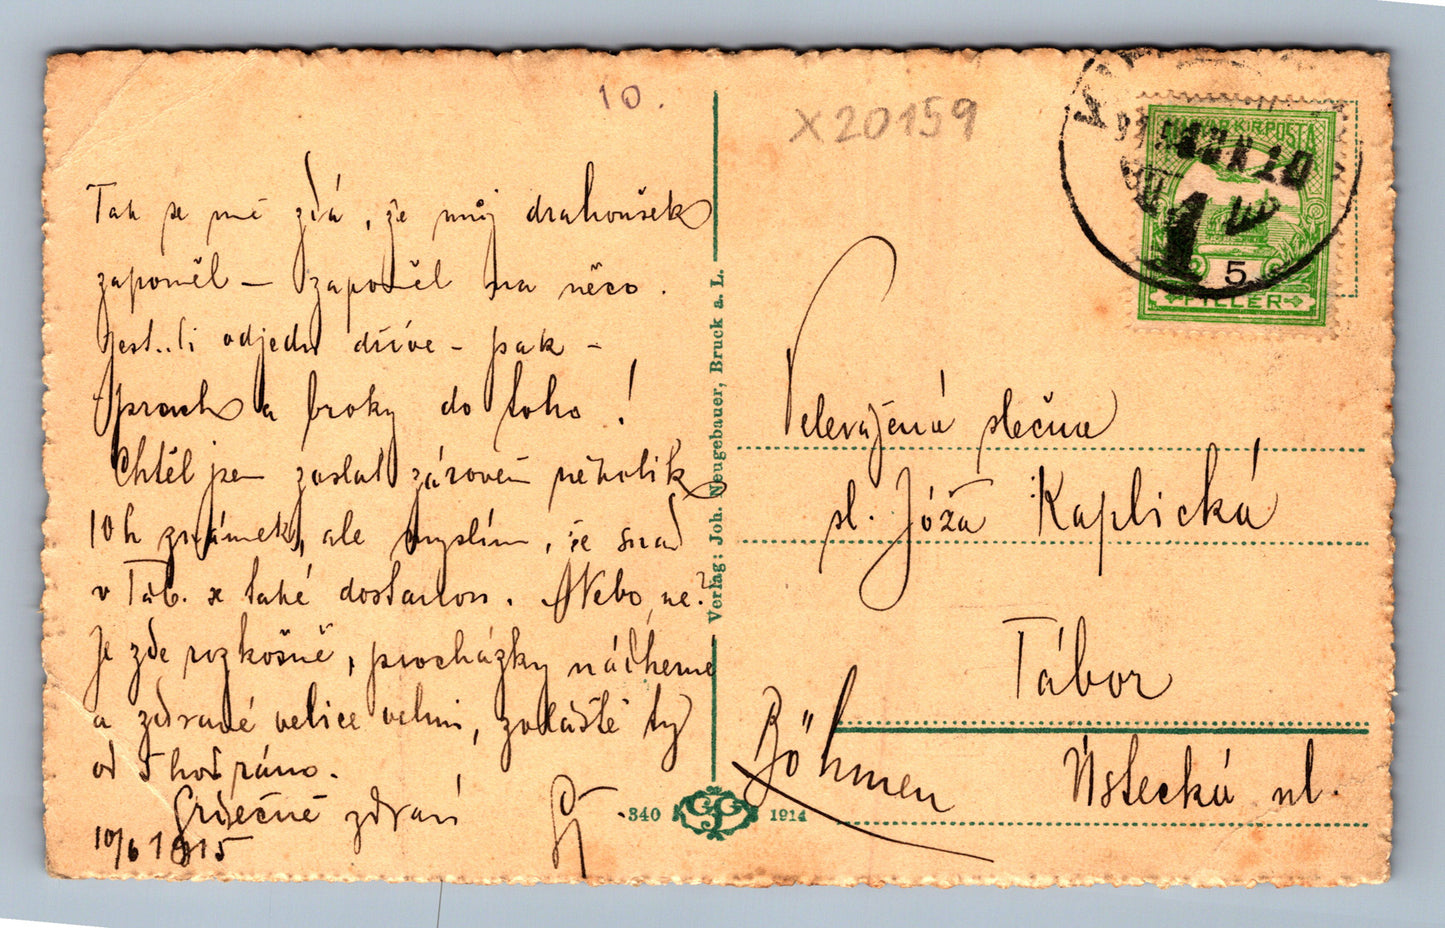 10.
X20159
Tak se mě zdá, že můj drahoušek
zapoměl – zapoměl na něco.
Jest..li odjedu dříve – pak –
prach a broky do toho!
Chtěl jsem zaslat zároveň několik
10h známek, ale myslím, že snad
v Táb. je také dostanou. Nebo, ne?
Je zde rozkošně, procházky nádherné
a zdravé velice velmi, zvláště ty
od 5 hod ráno.
Srdečně zdraví
10/6 1915
Verlag: Joh. Neugebauer, Bruck a. L.
340
1914
MAGYAR KIR. POSTA
5
FILLÉR
Velevážená slečna
sl. Jóža Kaplická
Tábor
Böhmen
Ústecká ul.